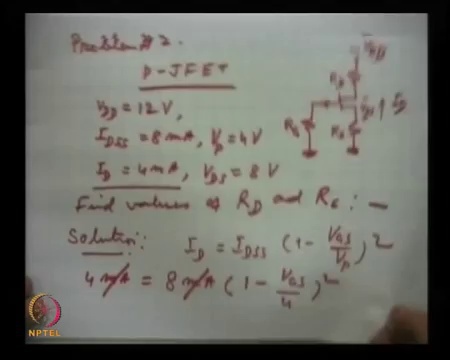 Problem # 2.
P-JFET
VDD = 12 V,
IDSS = 8 mA, Vp = 4V
ID = 4mA, VDS = 8 V
Find values of RD and RS : —
Solution: ID = IDSS (1 - VGS/Vp)²
4 mA = 8 mA (1 - VGS/4)²
RD
RG
RS
ID
NPTEL